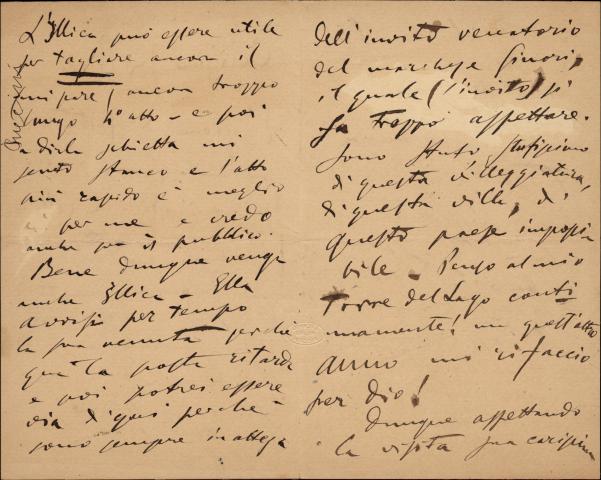 L'Illica può essere utile
per tagliare ancora il
mi pare (ancora troppo
lungo 4° atto - e poi
a dirla schietta mi
sento stanco e l'atto
più rapido è meglio
per me e credo
anche per il pubblico.
Bene dunque venga
anche Illica - Ella
avvisi per tempo
la sua venuta perché
qua la posta ritarda
e poi potrei essere
via di qui perché
sono sempre in attesa
dell'invito venatorio
del marchese Ginori,
il quale (l'invito) si
fa troppo aspettare.
Sono stufo stufissimo
di questa villeggiatura,
di questa villa, di
questo paese impossi
bile - Penso al mio
Torre del Lago conti
nuamente! un quest'altro
anno mi rifaccio
per dio!
Dunque aspettando
la visita sua carissima